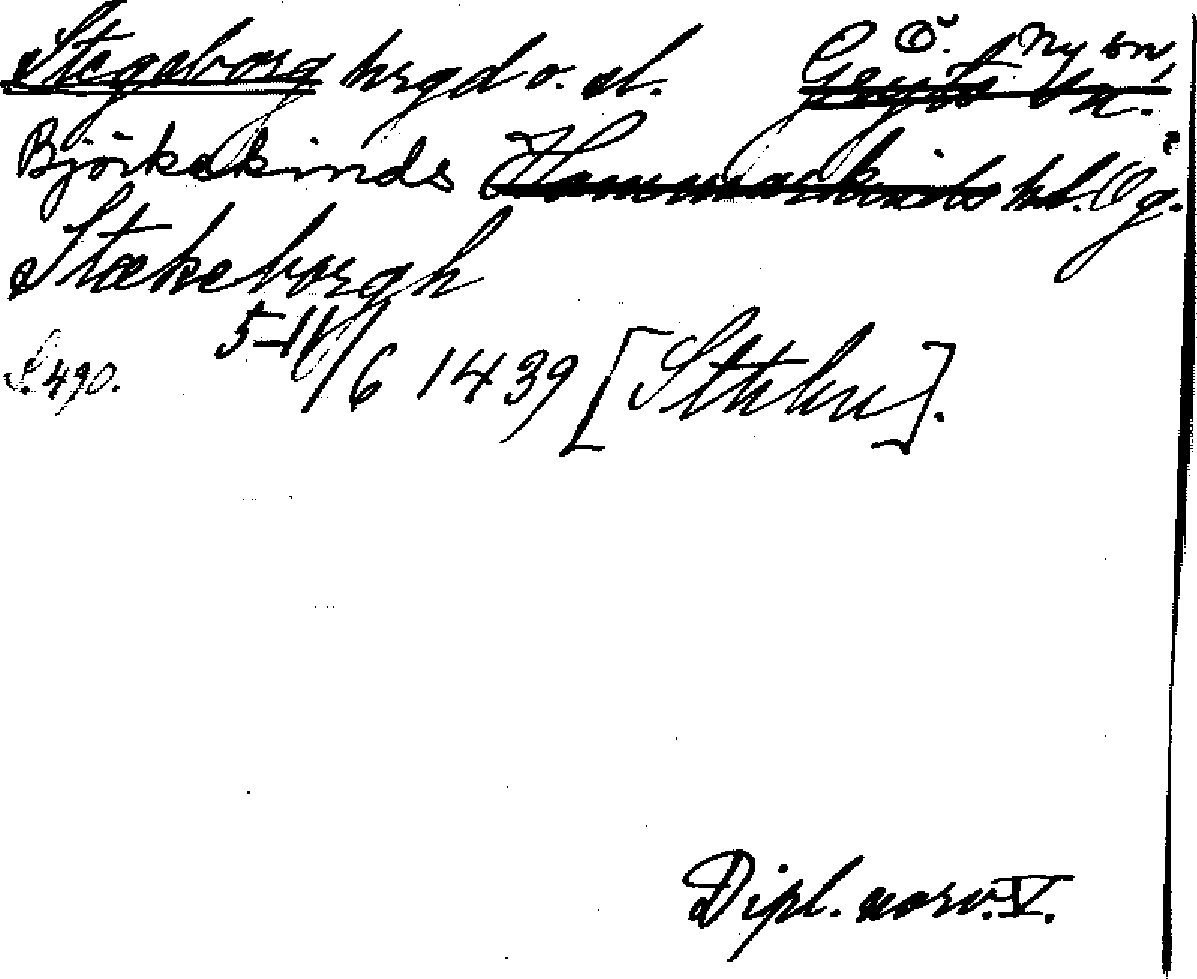 Stegeborg hrgd o. sl. Ö. Ny sn,
Björkekinds Hammarkinds hd. Ög.
Stækeborgh
S. 490. 5-11/6 1439 [Sthlm].
Dipl. norv. V.